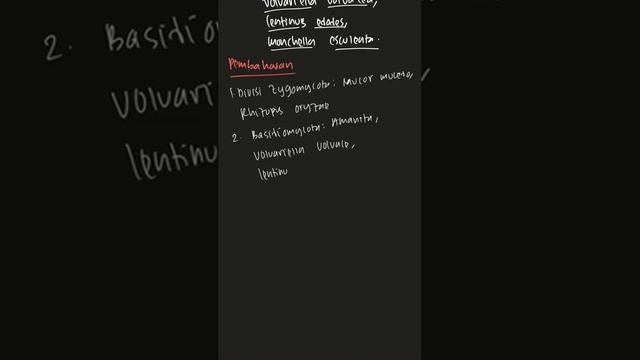 volvariella volvacea,
lentinus edodes,
monchella esculenta.
Pembahasan
1. Divisi Zygomycota: Mucor mucedo,
Rhizopus oryzae
2. Basidiomycota: Amanita,
volvariella volvace,
lentinu